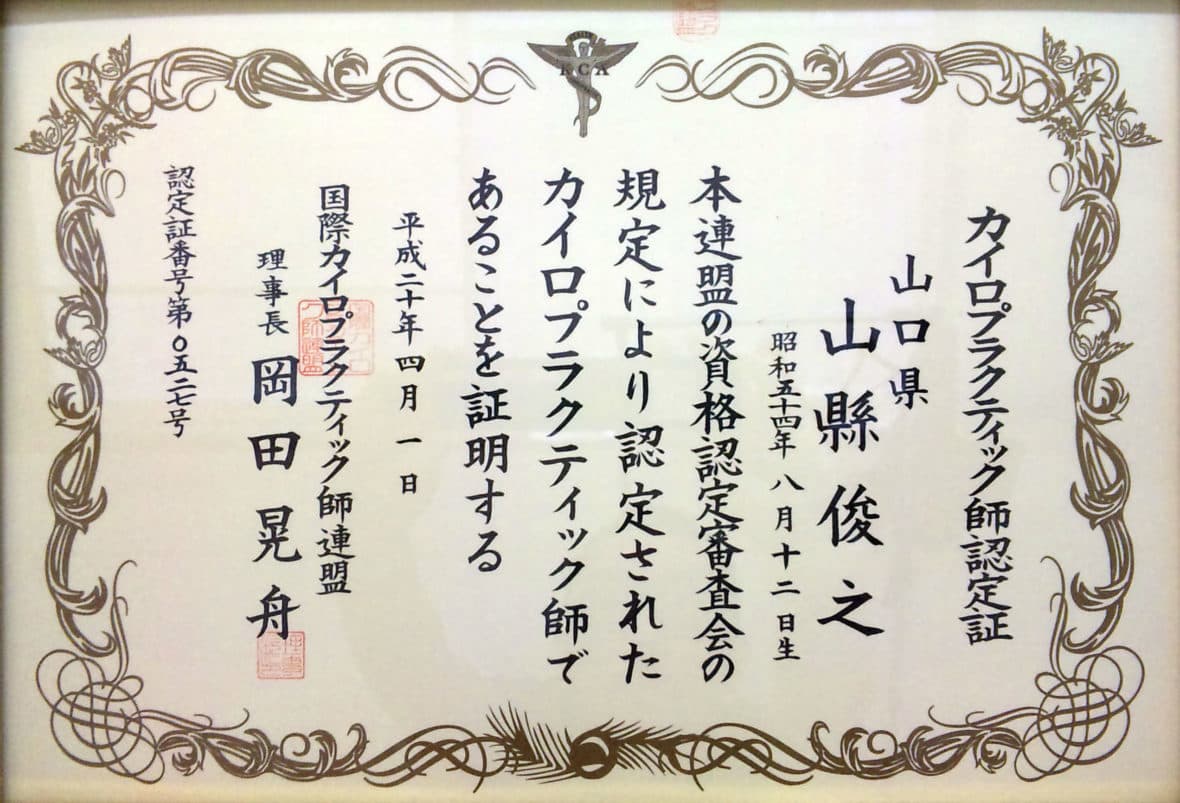 カイロプラクティック師認定証
山口県
山縣俊之
昭和五十四年八月十二日生
本連盟の資格認定審査会の
規定により認定された
カイロプラクティック師で
あることを証明する
平成二十年四月一日
国際カイロプラクティック師連盟
理事長 岡田晃舟
認定証番号第〇五二七号